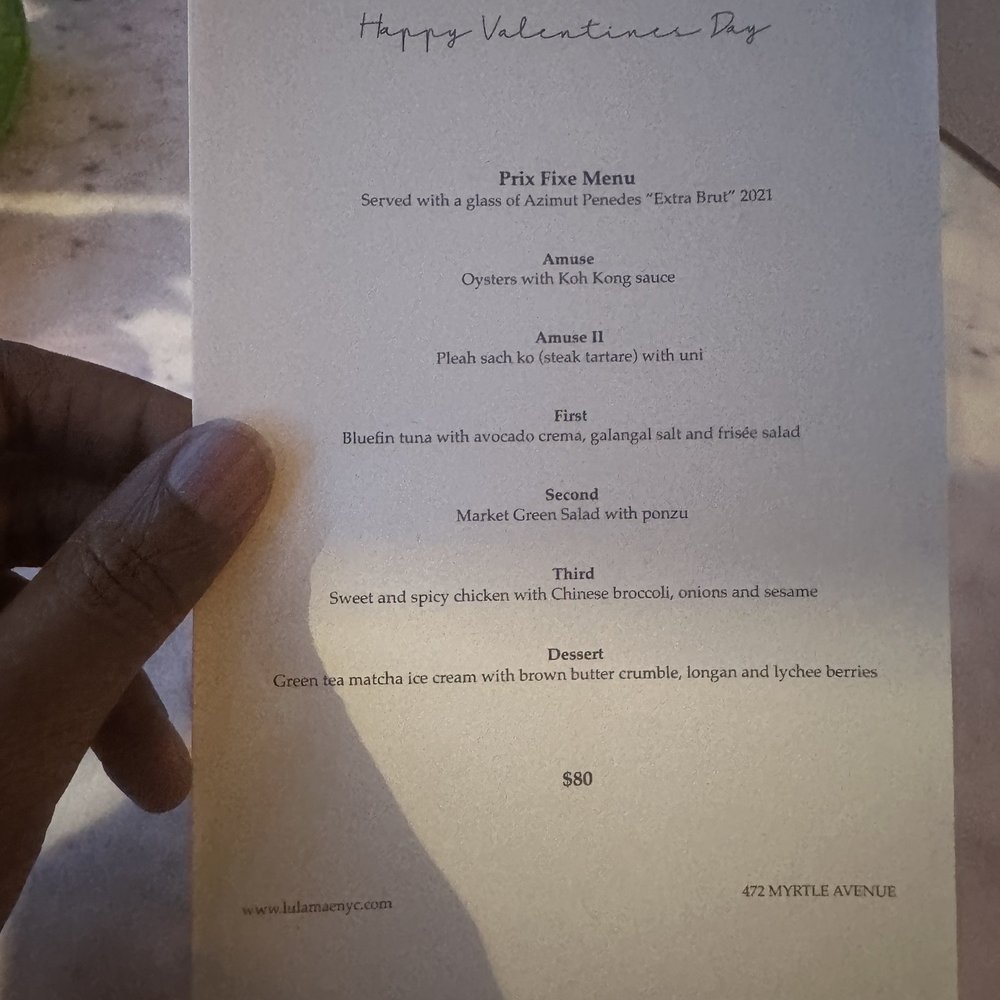 Happy Valentines Day
Prix Fixe Menu
Served with a glass of Azimut Penedes “Extra Brut” 2021
Amuse
Oysters with Koh Kong sauce
Amuse II
Pleah sach ko (steak tartare) with uni
First
Bluefin tuna with avocado crema, galangal salt and frisée salad
Second
Market Green Salad with ponzu
Third
Sweet and spicy chicken with Chinese broccoli, onions and sesame
Dessert
Green tea matcha ice cream with brown butter crumble, longan and lychee berries
$80
www.lulamaenyc.com
472 MYRTLE AVENUE